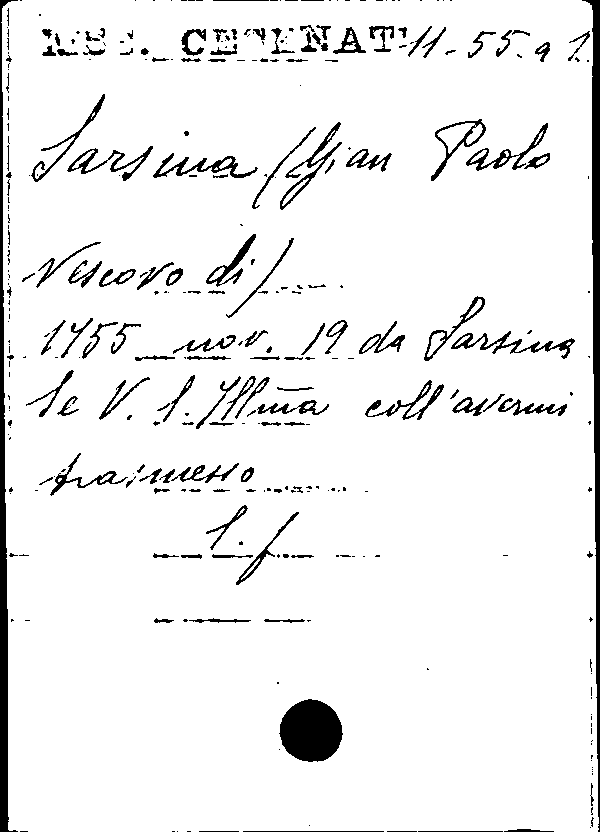 MSS. CETENATI 11-55. a 1
Sarsina (Gian Paolo
Vescovo di)
1755 nov. 19 da Sarsina
Se V. S. Illm̃a coll'avermi
trasmesso
l. f